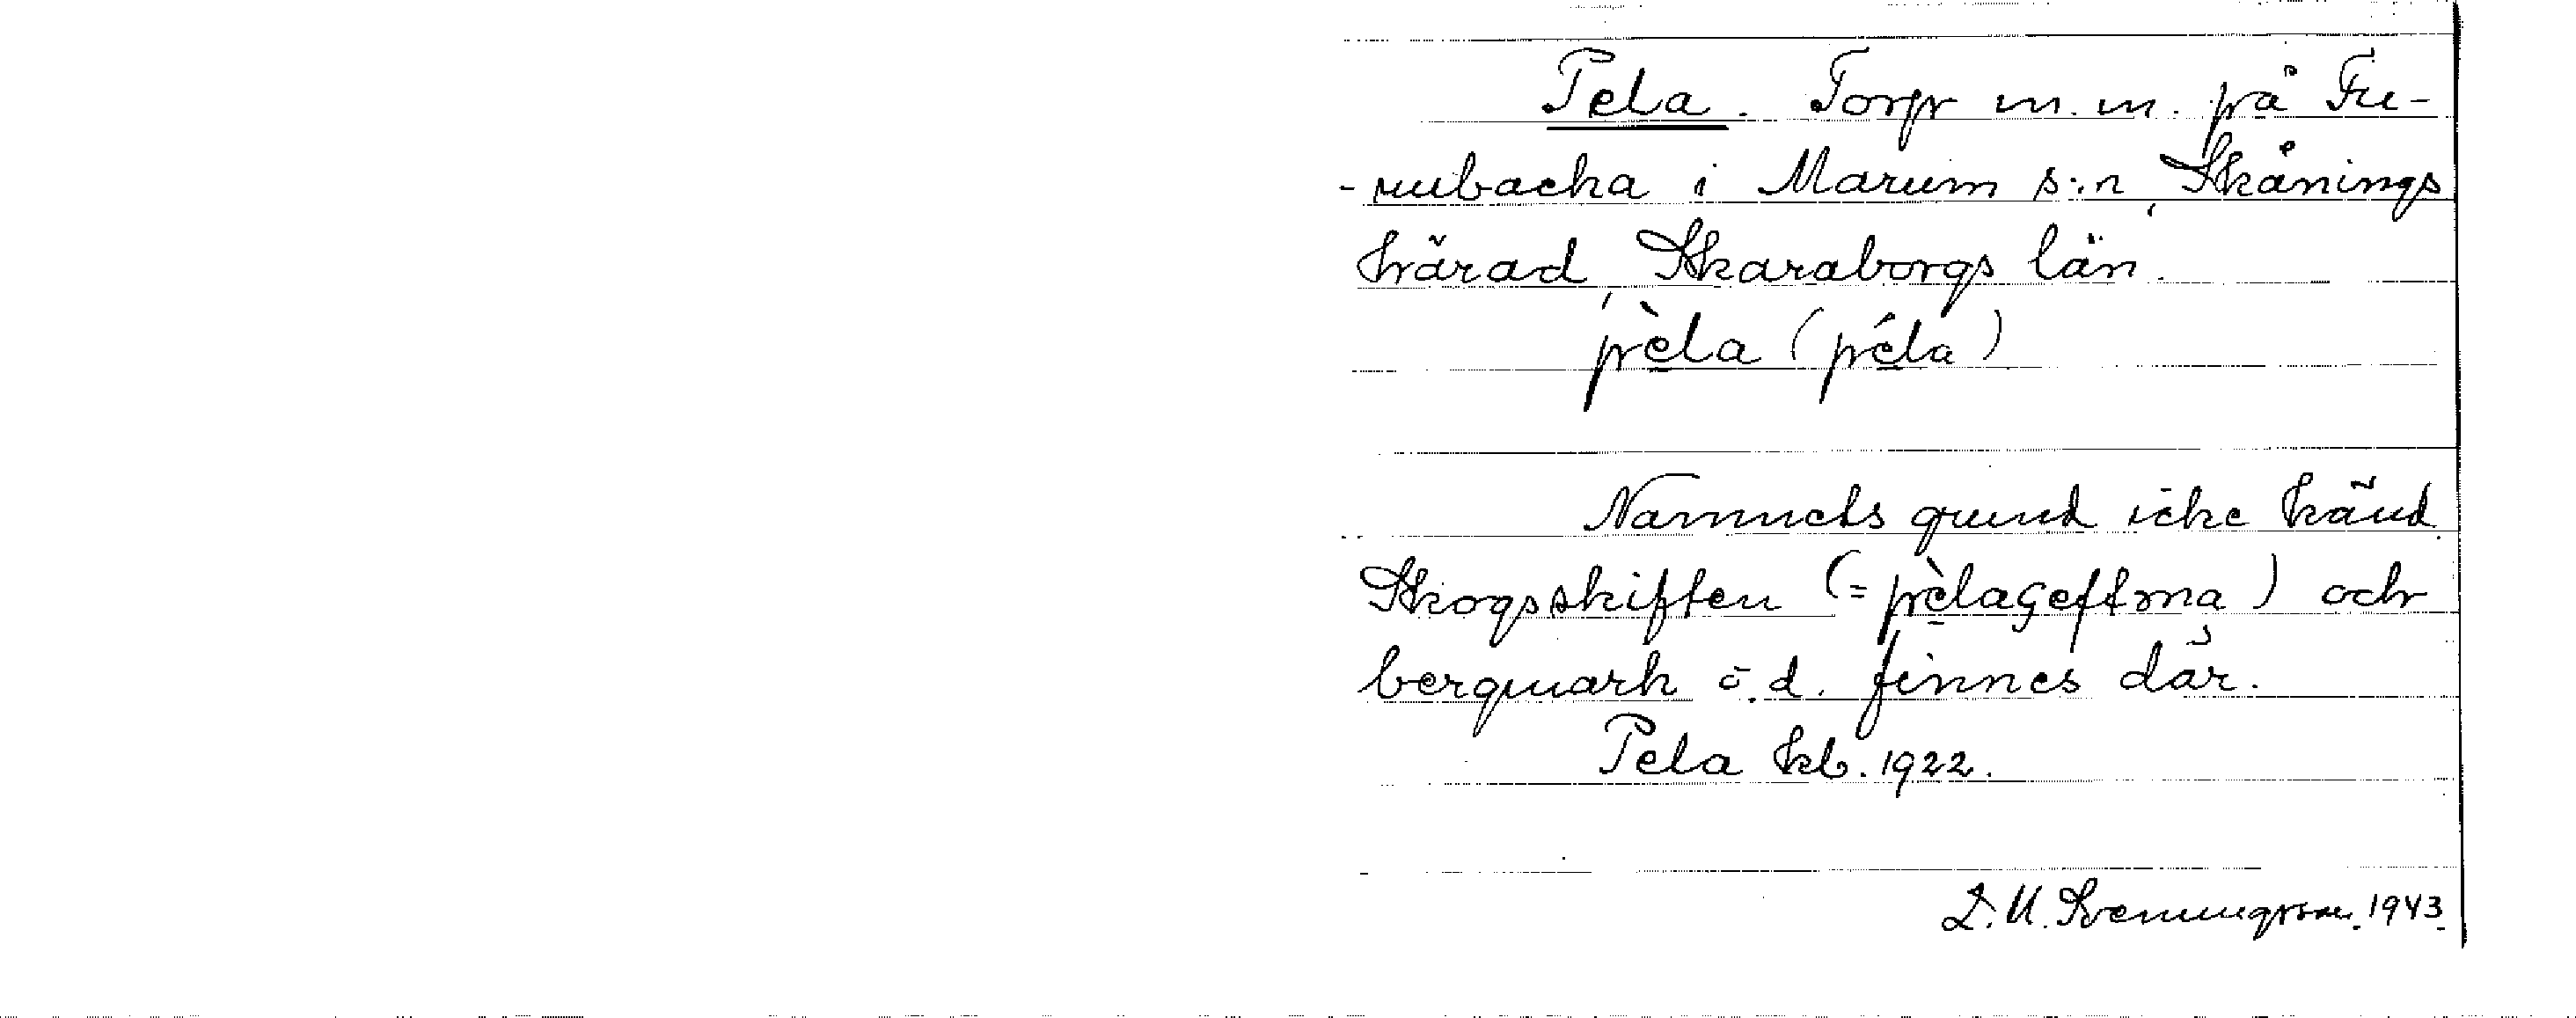 Pela. Torp m.m. på Fu-
-rubacka i Marum s:n, Skånings
härad, Skaraborgs län.
pèla (péla)
Namnets grund icke känd.
Skogsskiften (= pèlaçeftrna) och
bergmark o.d. finnes där.
Pela kb. 1922.
L. M. Svenungsson. 1943.